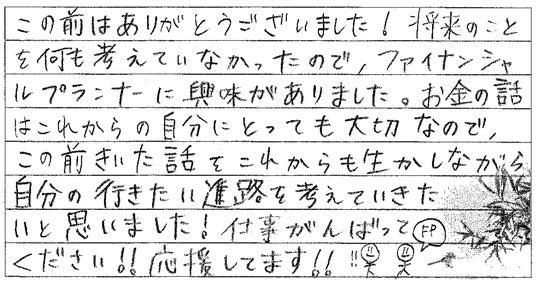 この前はありがとうございました！将来のこと
を何も考えていなかったので、ファイナンシャ
ルプランナーに興味がありました。お金の話
はこれからの自分にとっても大切なので、
この前きいた話をこれからも生かしながら
自分の行きたい進路を考えていきた
いと思いました！仕事がんばって
ください!!応援してます!!!!
FP